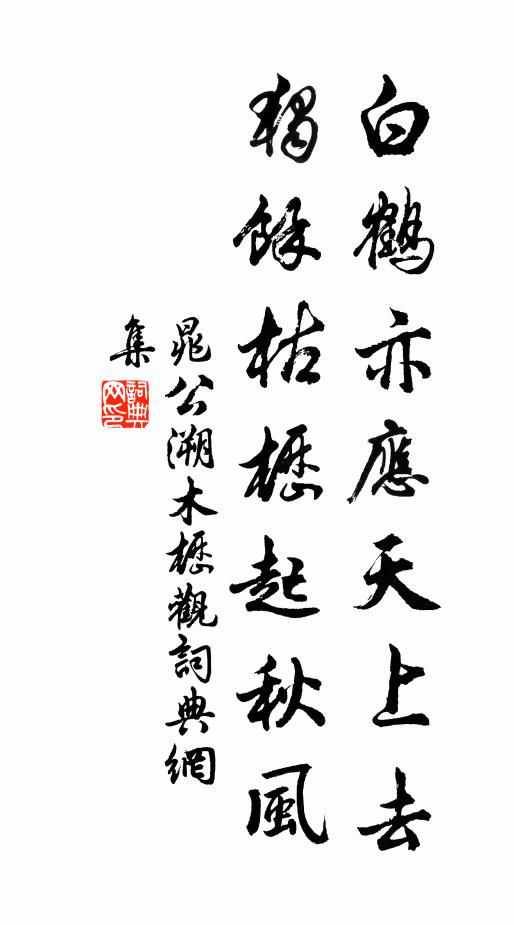 白鶴亦應天上去
獨餘枯櫪起秋風
晁公溯木櫪觀詞典網
集
詞典
网印